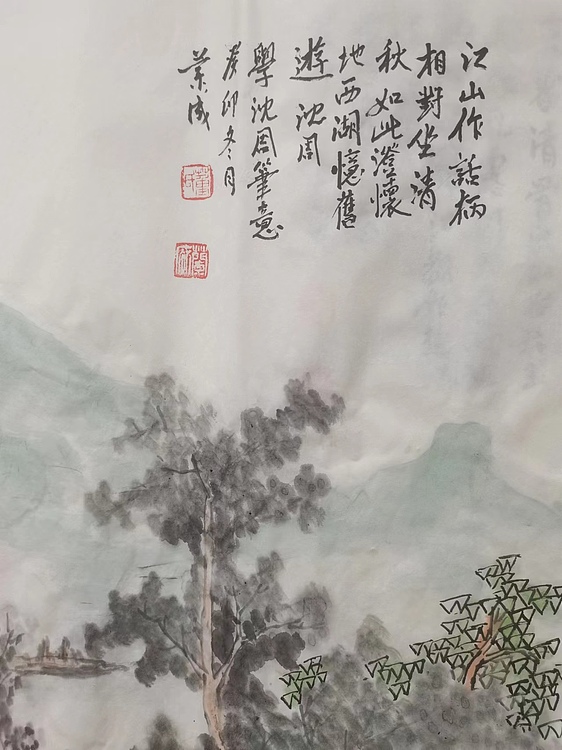 江山作話柄
相對坐清
秋如此澄懷
地西湖憶舊
遊沈周
學沈周筆意
癸卯冬月
業成